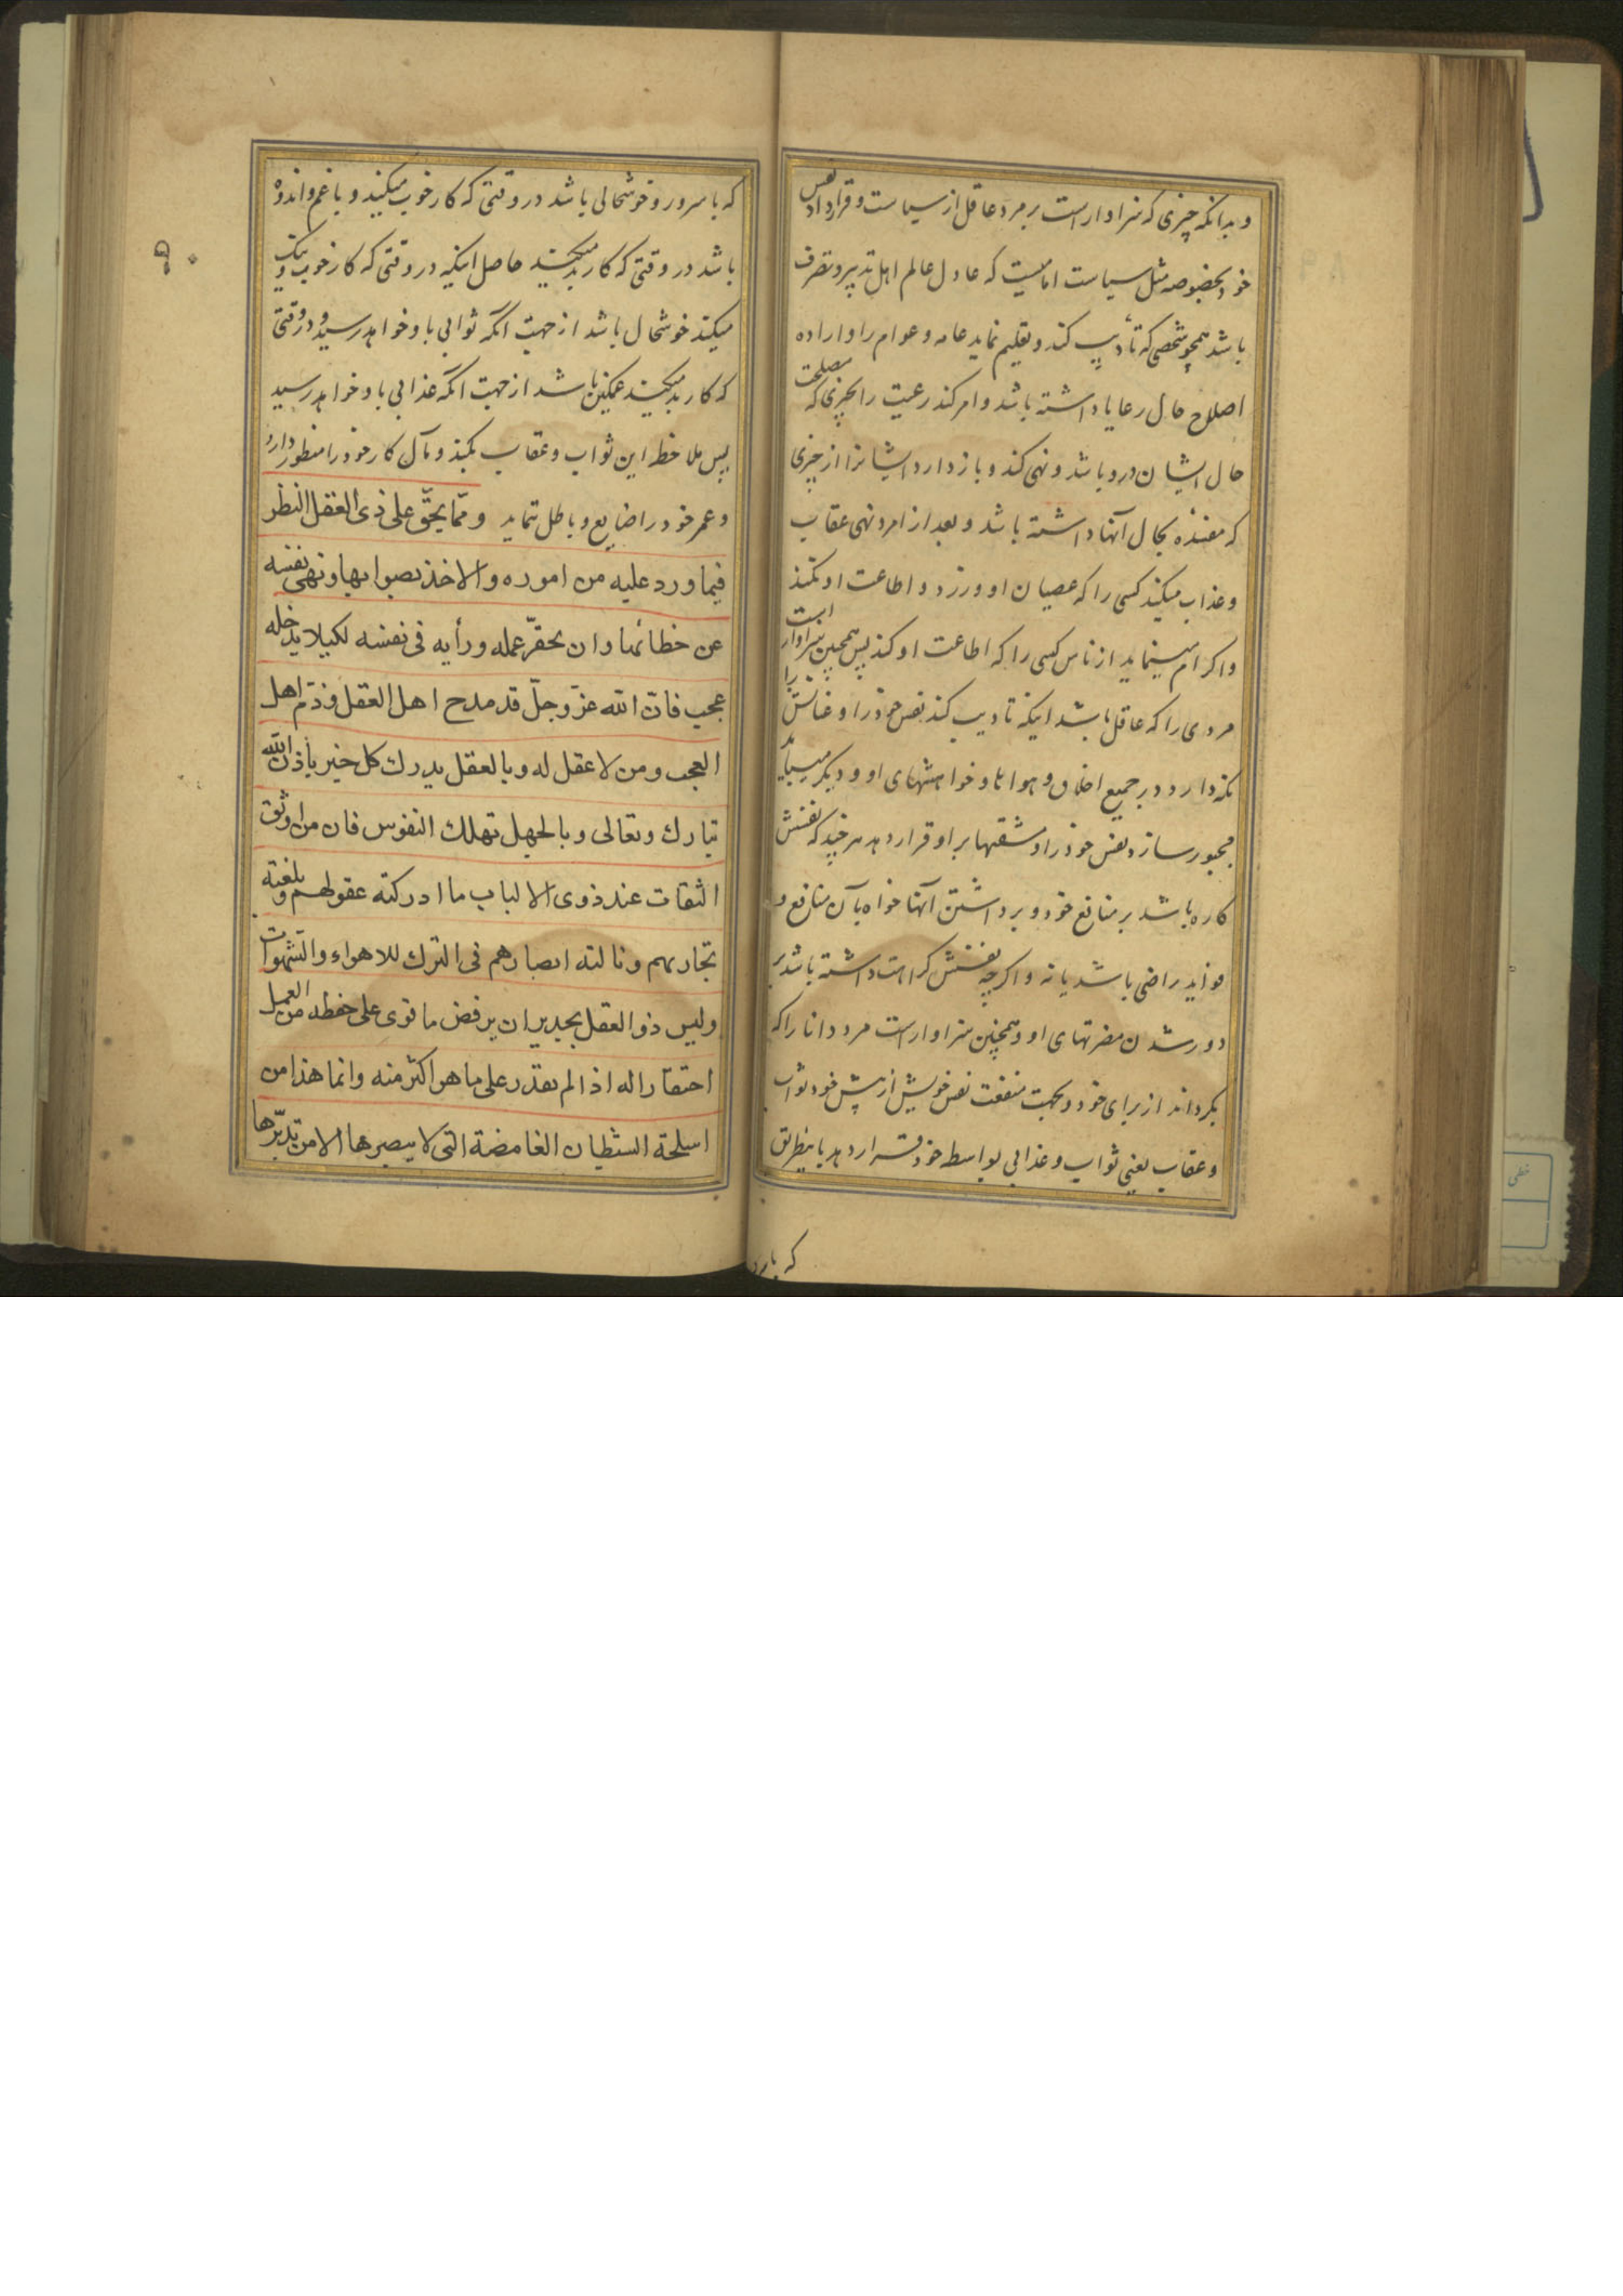 و بدانکه چیزی که سزاوار است بر مرد عاقل از سیاست و قرارداد نفس
خود بخصوصه مثل سیاست امامیست که عادل عالم اهل تدبیر و تصرف
باشد همچو شخصی که تأدیب کند و تعلیم نماید عامه و عوام را و اراده
اصلاح حال رعایا داشته باشد و امر کند رعیت را بچیزی که مصلحت
حال ایشان درو باشد و نهی کند و بازدارد ایشانرا از چیزی
که مفسده بحال آنها داشته باشد و بعد از امر و نهی عقاب
و عذاب میکند کسی را که عصیان او ورزد و اطاعت او نکند
و اکرام مینماید از ناس کسی را که اطاعت او کند پس همچنین سزاوار است
مردی را که عاقل باشد اینکه تادیب کند نفس خود را و عنانش را
نکه دارد در جمیع اخلاق و هواها و خواهشهای او و دیکر میباید
مجبور سازد نفس خود را و مشقتها بر او قرار دهد هر چند که نفسش
کاره باشد بر منافع خود و برداشتن آنها خواه بآن منافع و
فواید راضی باشد یا نه و اکر چه نفسش کراهت داشته باشد بر
دور شدن مضرتهای او و همچنین سزاوار است مرد دانا را که
بکرداند از برای خود و بجهت منفعت نفس خویش از پیش خود ثواب
و عقاب یعنی ثواب و عذابی بواسطه خود قرار دهد باینطریق
که با سرور
که با سرور و خوشحالی باشد در وقتی که کار خوب میکند و با غم و اندوه
باشد در وقتی که کار بد میکند حاصل اینکه در وقتی که کار خوب و نیک
میکند خوشحال باشد از جهت انکه ثوابی باو خواهد رسید و در وقتی
که کار بد میکند غمکین باشد از جهت انکه عذابی باو خواهد رسید
پس ملاحظه این ثواب و عقاب بکند و مآل کار خود را منظور دارد
و عمر خود را ضایع و باطل ننماید و ممّا یحقّ علی ذی العقل النظر
فیما ورد علیه من اموره والاخذ بصوابها و نهی نفسه
عن خطائها وان یحقّر عمله و رأیه فی نفسه لکیلا یدخله
عجب فانّ الله عزّ وجلّ قد مدح اهل العقل و ذمّ اهل
العجب و من لا عقل له و بالعقل یدرك کل خیر بأذن الله
تبارك وتعالی و بالجهل تهلك النفوس فان من اوثق
الثقات عند ذوی الالباب ما ادرکته عقولهم و بلغته
تجاربهم و نالته ابصارهم فی الترك للاهواء والشهوات
ولیس ذو العقل بجدیر ان یرفض ما قوی علی حفظه من العمل
احتقارا له اذا لم یقدر علی ما هو اکثر منه وانما هذا من
اسلحة الشیطان الغامضة التی لا یبصرها الا من تدبّرها